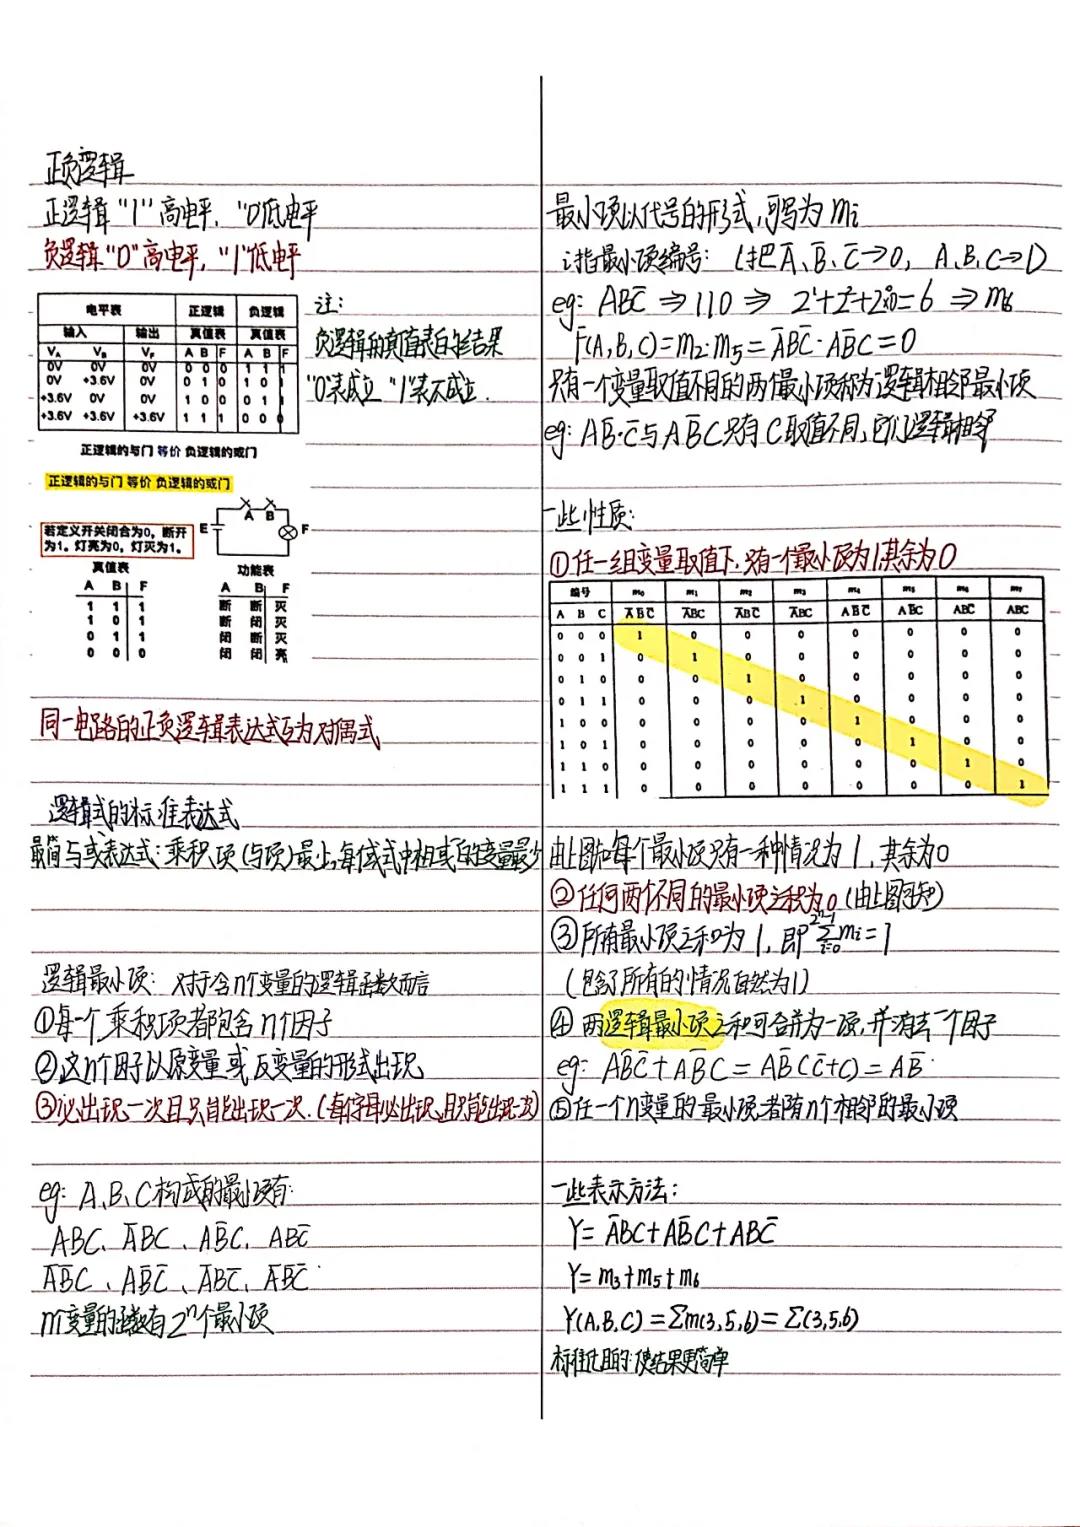 正负逻辑
正逻辑 "1" 高电平, "0"低电平
负逻辑 "0" 高电平, "1"低电平
电平表 正逻辑 负逻辑
输入 输出 真值表 真值表
VA VB VF A B F A B F
0V 0V 0V 0 0 0 1 1 1
0V +3.6V 0V 0 1 0 1 0 1
+3.6V 0V 0V 1 0 0 0 1
+3.6V +3.6V +3.6V 1 1 1 0 0
注:
负逻辑的真值表的 结果
"0"表成立 "1"表不成立.
正逻辑的与门 等价 负逻辑的或门
正逻辑的与门 等价 负逻辑的或门
若定义开关闭合为0, 断开
为1。灯亮为0, 灯灭为1。
E A B F
真值表 功能表
A B F A B F
1 1 1 断 断 灭
1 0 1 断 闭 灭
0 1 1 闭 断 灭
0 0 0 闭 闭 亮
同一电路的正负逻辑表达式互为对偶式
逻辑式的标准表达式
最简与或表达式: 乘积项(与项)最少, 每 式中相或的变量最少
逻辑最小项: 对于含n个变量的逻辑函数而言
①每一个乘积项都包含n个因子
②这n个因子以原变量或反变量的形式出现
③必出现一次且只能出现一次. (每个字母必出现,且只能出现一次)
eg: A、B、C构成的最小项有:
ABC、A̅BC、AB̅C、ABC̅
A̅B̅C、AB̅C̅、A̅BC̅、A̅B̅C̅
n个变量的函数有2ⁿ个最小项
最小项以代号的形式,可写为mi
i指最小项编号: (把A̅、B̅、C̅→0, A、B、C→1)
eg: ABC̅ ⇒ 110 ⇒ 2¹+2²+2×0=6 ⇒ m6
F(A,B,C)=m2·m5=A̅BC̅·AB̅C=0
只有一个变量取值不同的两个最小项称为逻辑相邻最小项
eg: AB̅·C̅与AB̅C只有C取值不同,它们逻辑相邻
一些性质:
①任一组变量取值下,只有一个最小项为1其余为0
编号 m0 m1 m2 m3 m4 m5 m6 m7
A B C A̅B̅C̅ A̅B̅C A̅BC̅ A̅BC AB̅C̅ AB̅C ABC̅ ABC
0 0 0 1 0 0 0 0 0 0 0
0 0 1 0 1 0 0 0 0 0 0
0 1 0 0 0 1 0 0 0 0 0
0 1 1 0 0 0 1 0 0 0 0
1 0 0 0 0 0 0 1 0 0 0
1 0 1 0 0 0 0 0 1 0 0
1 1 0 0 0 0 0 0 0 1 0
1 1 1 0 0 0 0 0 0 0 1
由上图知每个最小项只有一种情况为1,其余为0
②任何两个不同的最小项之积为0 (由上图可知)
③所有最小项之和为1, 即 2ⁿ-1 Σ i=0 mi=1
(包含了所有的情况自然为1)
④ 两逻辑最小项之和可合并为一项,并消去一个因子
eg: AB̅C̅+AB̅C=AB̅(C̅+C)=AB̅
⑤任一个n变量的最小项,都有n个相邻的最小项
一些表示方法:
Y=A̅BC+AB̅C+ABC̅
Y=m3+m5+m6
Y(A,B,C)=Σm(3,5,6)=Σ(3,5,6)
标准 目的:使结果更简单